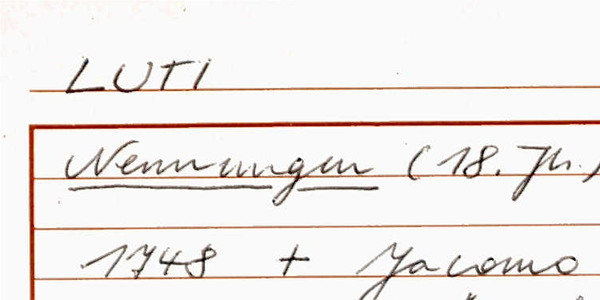 LUTI
Nennungen (18. Jh.)
1748 + Jacomo